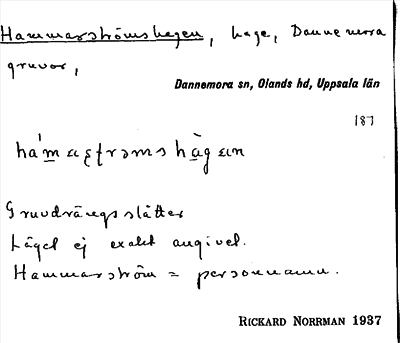 Hammarströmshagen, hage, Dannemora
gruvor,
Dannemora sn, Olands hd, Uppsala län
187
Gruvdrängsslåtter
Läget ej exakt angivet.
Hammarström = personnamn.
RICKARD NORRMAN 1937